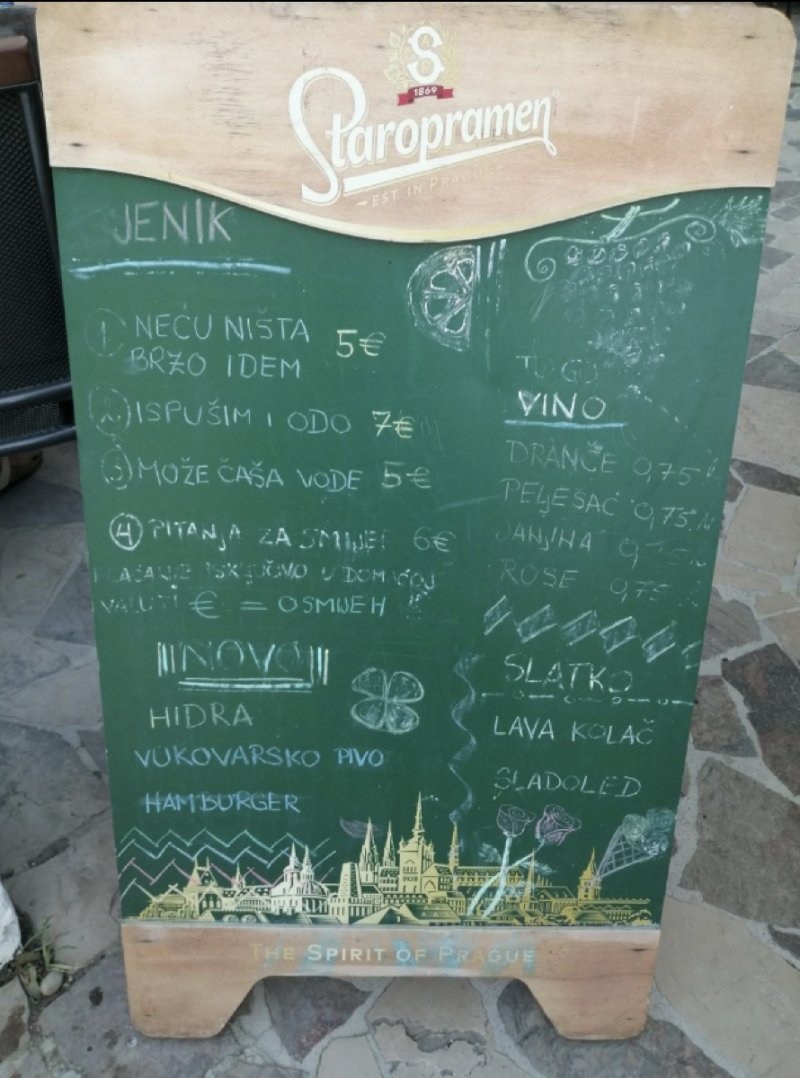 S
1869
Staropramen
EST. IN PRAGUE
JENIK
1 NEĆU NIŠTA
BRZO IDEM 5€
2 ISPUŠIM I ODO 7€
3 MOŽE ČAŠA VODE 5€
4 PITANJA ZA SMIJEH 6€
PLAĆANJE ISKLJUČIVO U DOMAĆOJ
VALUTI € = OSMIJEH
NOVO
HIDRA
VUKOVARSKO PIVO
HAMBURGER
TO GO
VINO
DRANČE 0,75
PELJESAĆ 0,75
JANJINA
ROSE 0,75
SLATKO
LAVA KOLAČ
SLADOLED
THE SPIRIT OF PRAGUE